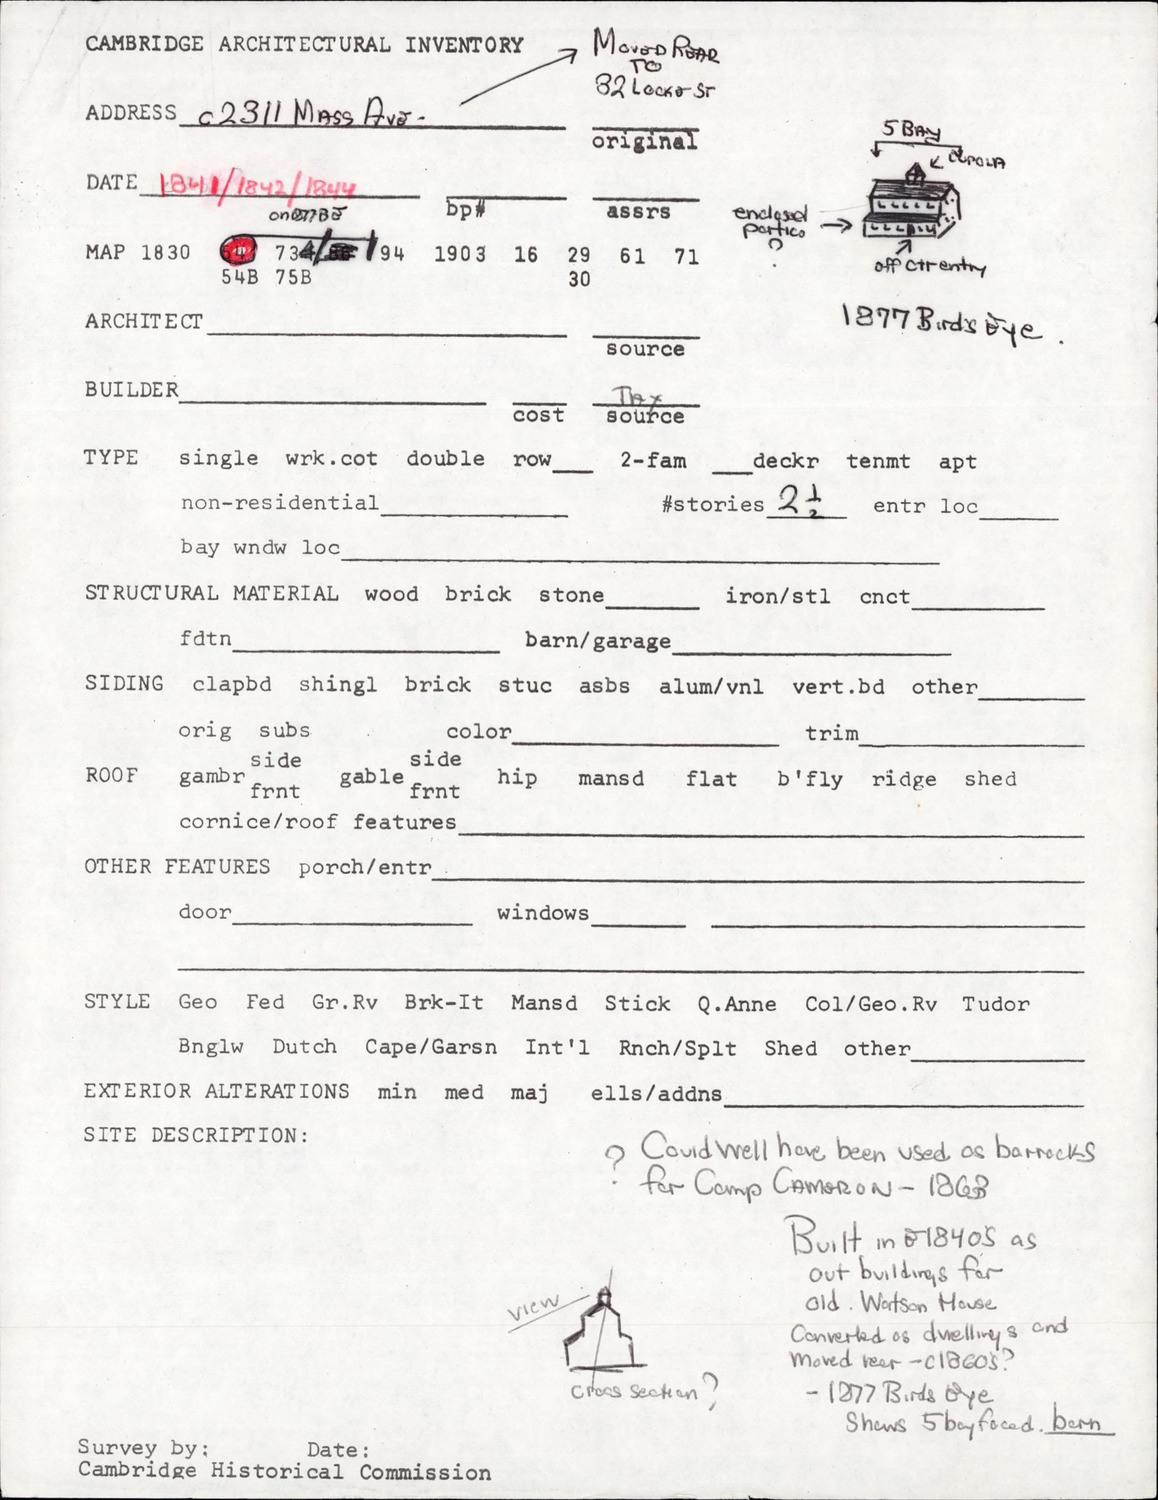 CAMBRIDGE ARCHITECTURAL INVENTORY
MOVED REAR
TO
82 Locke ST
ADDRESS c2311 MASS AVE.
original
5 BAY
CUPOLA
DATE 1841/1842/1844
bp#
assrs
enclosed
portico
?
off ctr entry
MAP 1830 73 94 1903 16 29 61 71
54B 75B 30
1877 Bird's Eye.
ARCHITECT
source
BUILDER
Tax
cost source
TYPE single wrk.cot double row___ 2-fam ___deckr tenmt apt
non-residential #stories 2½ entr loc
bay wndw loc
STRUCTURAL MATERIAL wood brick stone iron/stl cnct
fdtn barn/garage
SIDING clapbd shingl brick stuc asbs alum/vnl vert.bd other
orig subs color trim
side side
ROOF gambr gable hip mansd flat b'fly ridge shed
frnt frnt
cornice/roof features
OTHER FEATURES porch/entr
door windows
STYLE Geo Fed Gr.Rv Brk-It Mansd Stick Q.Anne Col/Geo.Rv Tudor
Bnglw Dutch Cape/Garsn Int'l Rnch/Splt Shed other
EXTERIOR ALTERATIONS min med maj ells/addns
SITE DESCRIPTION:
? Could well have been used as barracks
for Camp CAMERON - 1863
Built in 1840s as
out buildings for
old. Watson House
Converted as dwellings and
moved rear - c1860s?
- 1877 Birds Eye
Shows 5 bay faced. barn
view
cross section?
Survey by: Date:
Cambridge Historical Commission